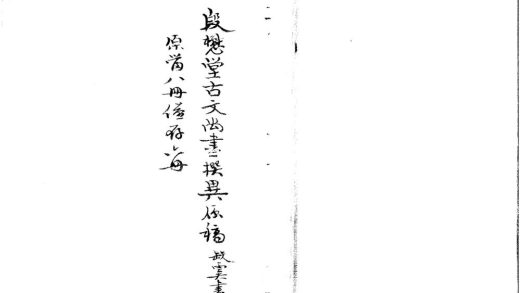 段懋堂古文尚書撰異原稿
原當八冊僅存